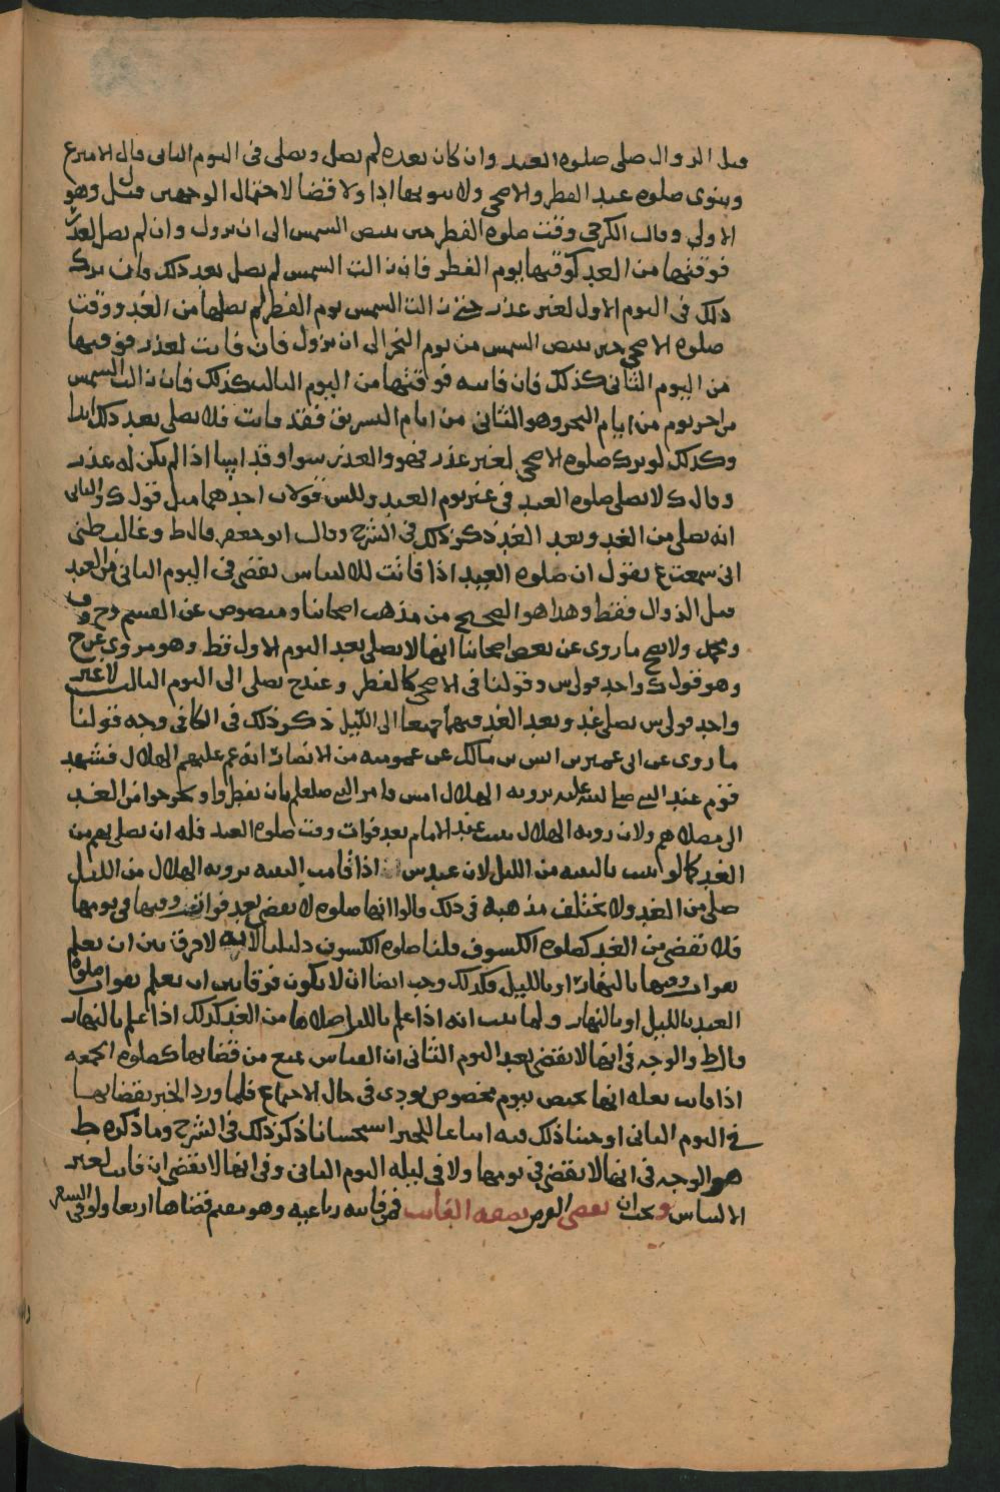 قبل الزوال صلى صلوة العيد وان كان بعده لم يصل ويصلي في اليوم الثاني قال الامير ع
وينوي صلوة عيد الفطر والاضحى ولا ينويها اداء ولا قضا لاحتمال الوجهين وهو
الاولى وقال الكرخي وقت صلوة الفطر حين تبيض الشمس الى ان تزول وان لم يصل لعذر
فوقتها من الغد كوقتها يوم الفطر فان زالت الشمس لم يصل بعد ذلك وان ترك
ذلك في اليوم الاول لغير عذر حتى زالت الشمس يوم الفطر لم يصلها من الغد ووقت
صلوة الاضحى حين تبيض الشمس من يوم النحر الى ان تزول فان فاتت لعذر فوقتها
من اليوم الثاني كذلك فان فاتته فوقتها من اليوم الثالث كذلك فان زالت الشمس
من اخر يوم من ايام النحر وهو الثاني من ايام التشريق فقد فاتت فلا يصلي بعد ذلك ابدا
وكذلك لو ترك صلوة الاضحى لغير عذر فهو والعذر سوا وقد اسا اذا لم يكن له عذر
وقال ك لا تصلى صلوة العيد في غير يوم العيد وللش قولان احدهما مثل قول ك والثاني
انه يصلي من الغد وبعد الغد ذكر ذلك في الشرح وقال ابو جعفر قال ط وغالب ظني
اني سمعت ع يقول ان صلوة العيد اذا فاتت للالتباس تقضى في اليوم الثاني من العيد
قبل الزوال فقط وهذا هو الصحيح من مذهب اصحابنا ومنصوص عن القسم وح وف
ومحمد ولا يصح ما روي عن بعض اصحابنا انها لا تصلى بعد اليوم الاول قط وهو مروي عن ح
وهو قول ك واحد قولي ش وقولنا في الاضحى كالفطر وعند ح تصلى الى اليوم الثالث لا غير
واحد قولي ش يصلي غد وبعد الغد فيهما جميعا الى الليل ذكر ذلك في الكافي وجه قولنا
ما روي عن ابي عمير بن انس بن مالك عن عمومته من الانصار انه غم عليهم الهلال فشهد
قوم عند النبي صلى الله عليه برويه الهلال امس فامر النبي صلعم بان يفطروا ويخرجوا من الغد
الى مصلاهم ولان رويه الهلال ثبت عند الامام بعد فوات وقت صلوة العيد فله ان يصلي بهم من
الغد كما لو ثبت بالبينه من الليل لان عند ش اذا قامت البينه برويه الهلال من الليل
صلى من الغد ولا يختلف مذهبه في ذلك قالوا انها صلوة لا تقضى بعد فوات وقتها في يومها
فلا تقضى من الغد كصلوة الكسوف قلنا صلوة الكسوف دليلنا لانه لا فرق بين ان يعلم
بفوات وقتها بالنهار او بالليل فكذلك وجب ايضا ان لا يكون فرقا بين ان يعلم بفوات صلوة
العيد بالليل او بالنهار ولما ثبت انه اذا علم بالليل صلاها من الغد كذلك اذا علم بالنهار
قال ط والوجه في انها لا تقضى بعد اليوم الثاني ان القياس يمنع من قضائها كصلوة الجمعه
اذا فاتت بعله انها تختص بيوم مخصوص يودى في حال الاجتماع فلما ورد الخبر بقضائها
في اليوم الثاني اوجبنا ذلك فيه اتباعا للخبر استحسانا ذكر ذلك في الشرح وما ذكره ط
هو الوجه في انها لا تقضى في يومها ولا في ليله اليوم الثاني وفي انها لا تقضى ان فاتت لغير
الالتباس ويجب ان يقضي الفرض بصفه الفائت فمن فاتته رباعيه وهو مقيم قضاها اربعا ولو في السفر